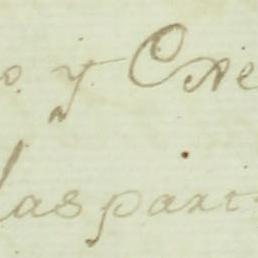 o. y Cne
las part